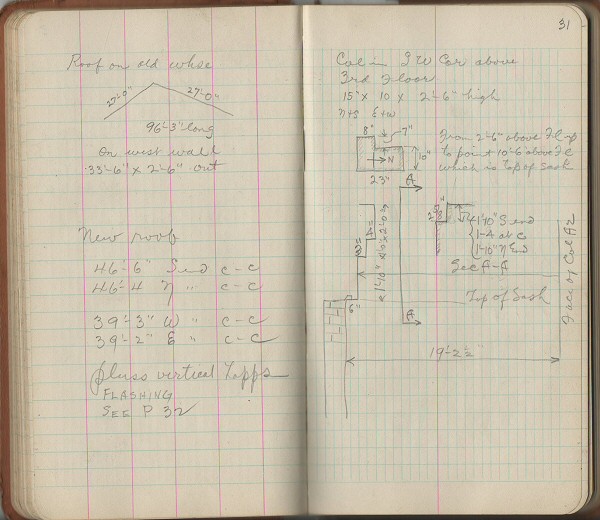 Roof on old whse
27'-0" 27'-0"
96'-3" long
On west wall
33'-6" x 2'-6" out
New roof
46'-6" S end c-c
46'-4 N " c-c
39'-3" W " c-c
39'-2" E " c-c
pluss vertical Lapps
FLASHING
SEE P 32
31
Col in 
 W Cor above
3rd Floor
15" x 10 x 2'-6" high
N+S E+W
8" 7"
N 10"
23"
From 2'-6" above Fl up
to point 10'-6" above Fl
which is Top of Sash
A
4"
3"
1'-10" S end
1'-10" N End
Sec A-A
6"
Top of Sash
A
Face of Col A2
19'-2½"